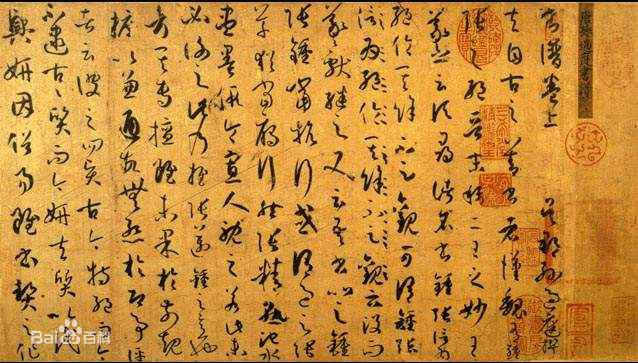 書譜卷上 吳郡孫過庭撰
夫自古之善書者漢魏有鍾
張之絕晉末稱二王之妙王
羲之云頃尋諸名書鍾張信為
絕倫其餘不足觀可謂鍾張
信為絕倫其餘不足觀云沒而
羲獻繼之又云吾書比之鍾
張鍾當抗行或謂過之張
草猶當雁行然張精熟池水
盡墨假令寡人耽之若此未
必謝之此乃推張邁鍾之意也
考其專擅雖未果於前規
摭以兼通故無慚於即事評
者云彼之四賢古今特絕而今
不逮古古質而今妍夫質以代
興妍因俗易雖書契之作
Bai百科